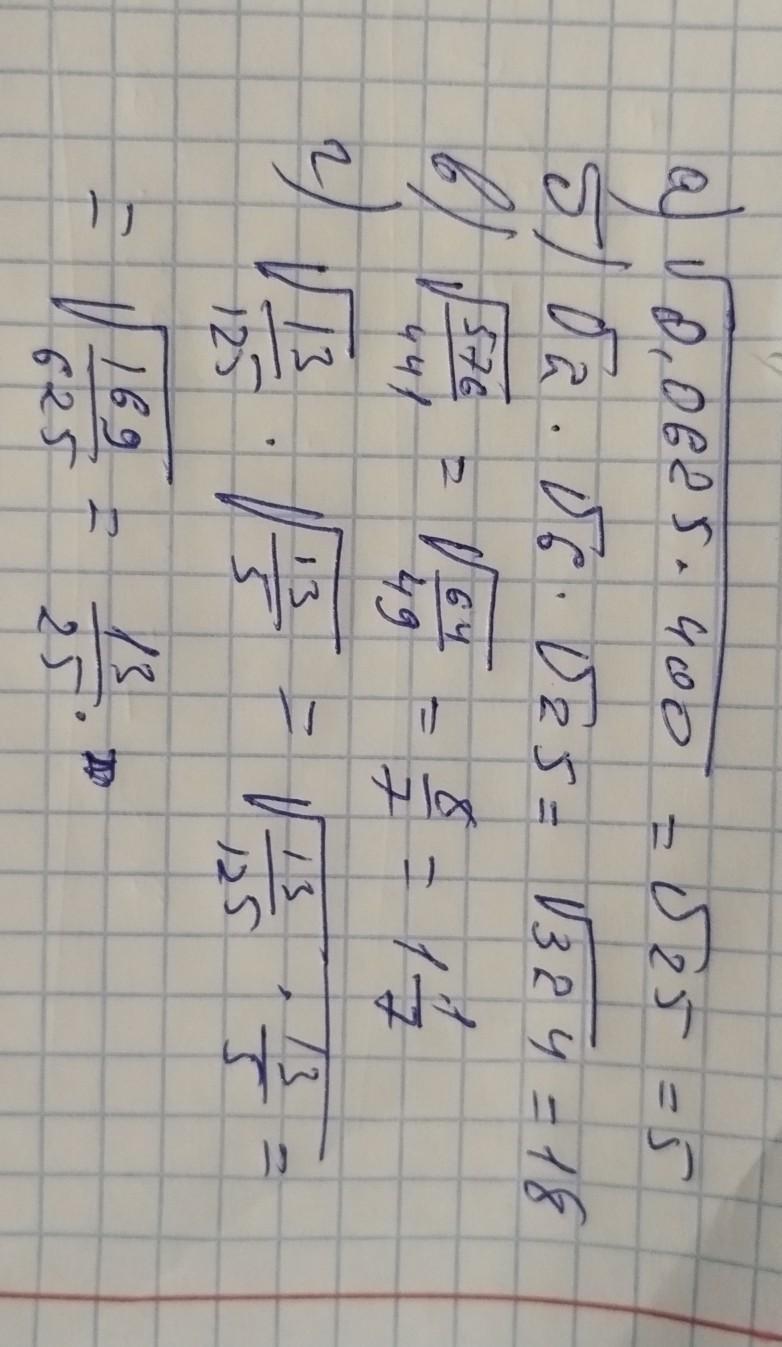 а) √0,0625·400 = √25 = 5
б) √2 · √6 · √25 = √324 = 18
в) √576/441 = √64/49 = 8/7 = 1 1/7
г) √13/125 · √13/5 = √13/125 · 13/5 =
= √169/625 = 13/25.